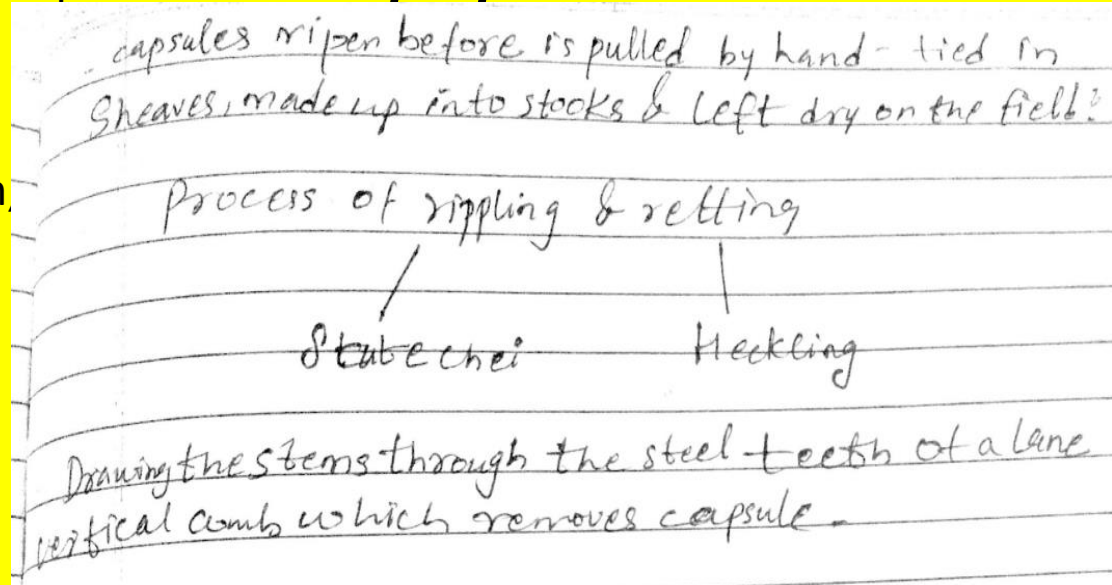 capsules ripen before is pulled by hand - tied in
Sheaves, made up into stooks & left dry on the field?
Process of rippling & retting
Heckling
Drawing the stems through the steel teeth of a lane
vertical comb which removes capsule.